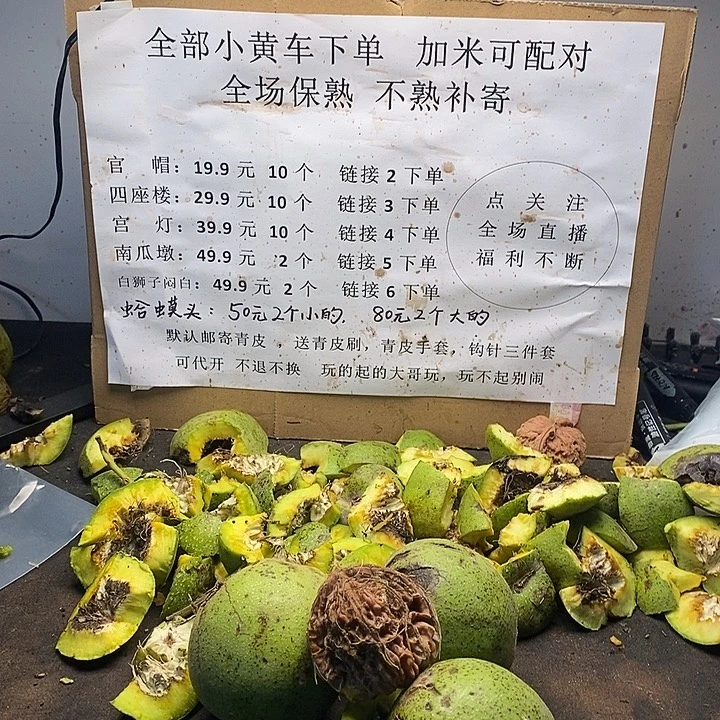 全部小黄车下单 加米可配对
全场保熟 不熟补寄
官 帽：19.9 元 10 个 链接 2 下单
四座楼：29.9 元 10 个 链接 3 下单
宫 灯：39.9 元 10 个 链接 4 下单
南瓜墩：49.9 元 2 个 链接 5 下单
白狮子闷白：49.9 元 2 个 链接 6 下单
蛤蟆头：50元2个小的，80元2个大的
点 关 注
全 场 直 播
福 利 不 断
默认邮寄青皮，送青皮刷，青皮手套，钩针三件套
可代开 不退不换 玩的起的大哥玩，玩不起别闹